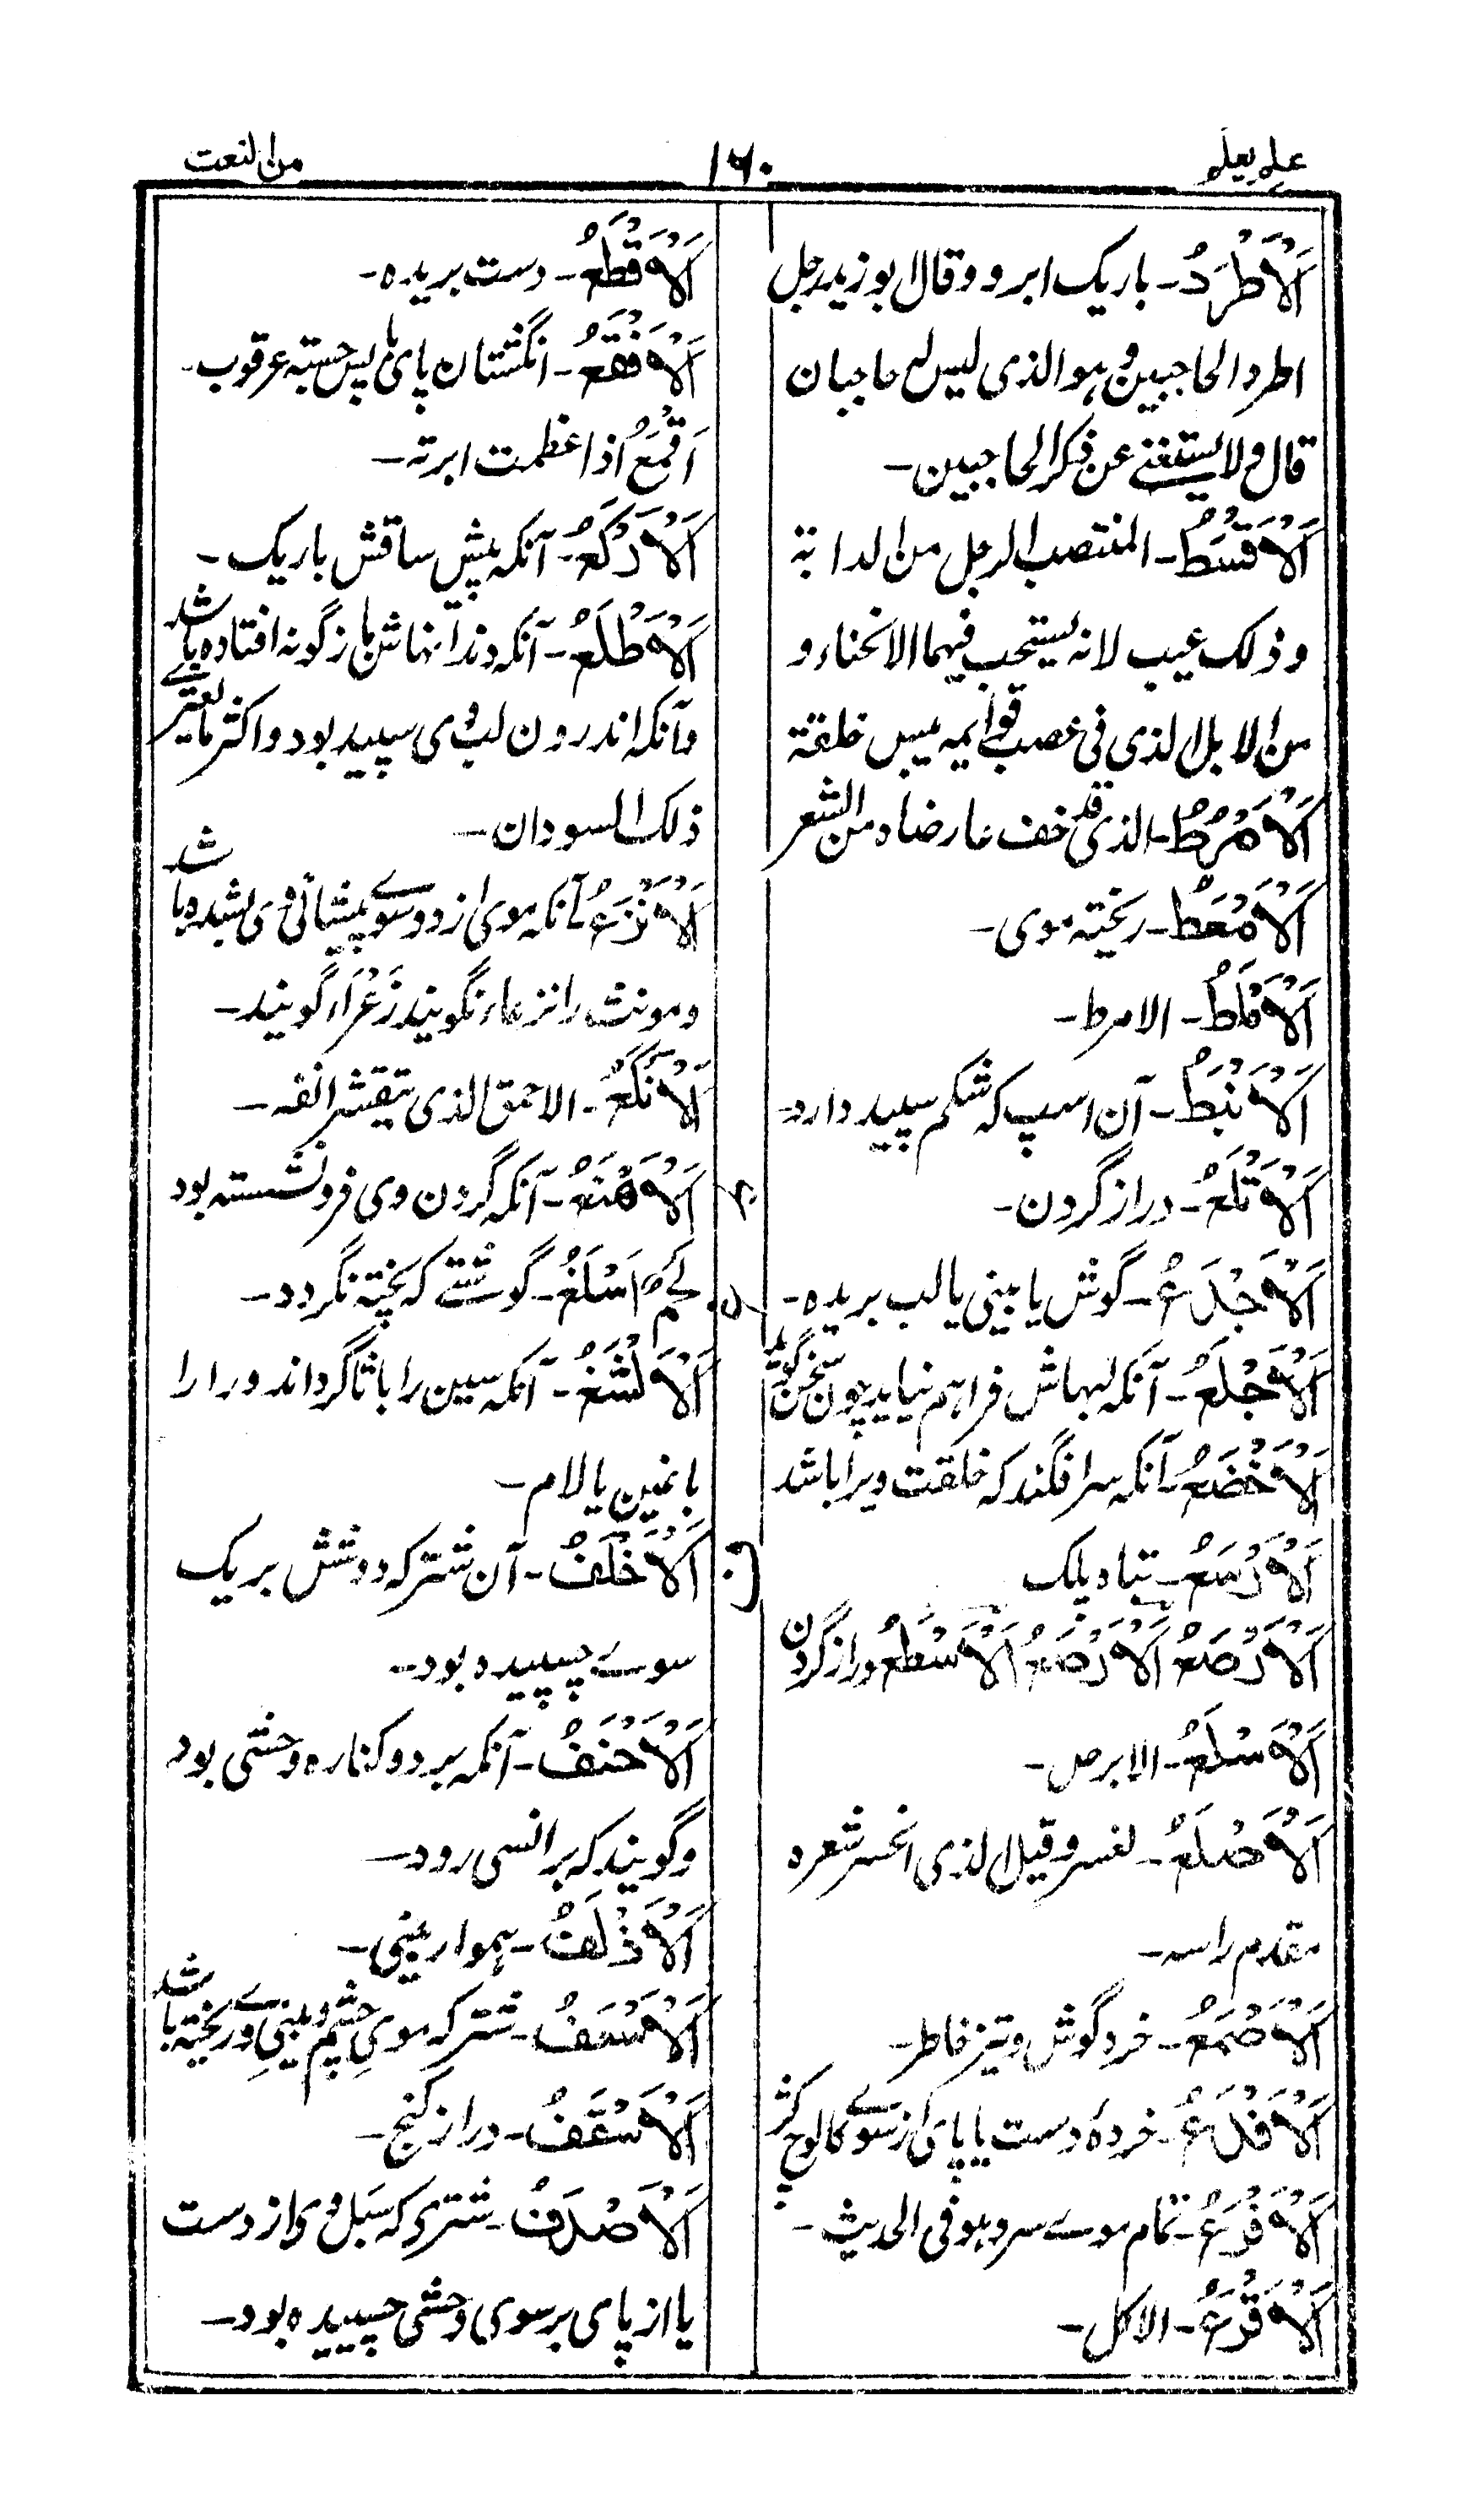 علم یعلم
۱۶۰
من النعت
اَلْاَطْرَدُ۔ باریک ابرو وقال ابو زید رجل
اطرد الحاجبین و ہو الذی لیس لہ حاجبان
قال و لا یستغنے عن ذکر الحاجبین۔
اَلْاَقْسَطُ۔ المنتصب الرجل من الدابة
و ذلک عیب لانہ یستحب فیہما الانحناء و
من الابل الذی فی عصب قوایمہ یبس خلقة
اَلْاَمْرَطُ۔ الذی قد خف عارضاہ من الشعر
اَلْاَمْعَطُ۔ ریختہ موی۔
اَلْاَمْلَطُ۔ الامرط۔
اَلْاَنْبَطُ۔ آن اسپ کہ شکم سپید دارد۔
اَلْاَتْلَعُ۔ دراز گردن۔
اَلْاَجْدَعُ۔ گوش یا بینی یا لب بریدہ۔
اَلْاَجْلَعُ۔ آنکہ لبہاش فراہم نیاید چون سخن گوید
اَلْاَخْضَعُ۔ آنکہ سر افگند کہ خلقت ویرا باشد
اَلْاَرْسَعُ۔ تباہ پلک
اَلْاَرْصَعُ اَلْاَرْضَعُ اَلْاَسْطَعُ دراز گردن
اَلْاَسْلَعُ۔ الابرص۔
اَلْاَصْلَعُ۔ لغسر و قیل الذی انحسر شعرہ
مقدم راسہ۔
اَلْاَصْمَعُ۔ خرد گوش و تیز خاطر۔
اَلْاَفْدَعُ۔ خردہ دست یا پای از سوے کالوج کژ
اَلْاَفْرَعُ۔ تمام موے سر و ہو فی الحدیث۔
اَلْاَقْرَعُ۔ الاکل۔
اَلْاَقْطَعُ۔ دست بریدہ۔
اَلْاَقْفَعُ۔ انگشتان پای با پس جستہ عرقوب۔
اَقْمَعُ اذا عظمت ابرتہ۔
اَلْاَکْرَعُ۔ آنکہ پیش ساقش باریک۔
اَلْاَلْطَعُ۔ آنکہ دندانہاش باز گونہ افتادہ باشد
و آنکہ اندرون لب وی سپید بود و اکثر ما یعتری
ذلک السودان۔
اَلْاَنْزَعُ۔ آنکہ موی از دو سوے پیشانی وی بشدہ باشد
و مونث را نزعاء نگویند زَعْرَاء گویند۔
اَلْاَنْکَعُ۔ الاحمق الذی یتقشر انفہ۔
اَلْاَهْنَعُ۔ آنکہ گردن وی فرو نشستہ بود
لحم اَسْلَغُ۔ گوشتے کہ پختہ نگردد۔
اَلْاَلْثَغُ۔ آنکہ سین را با ثا گرداند و را را
با غین یا لام۔
ف
اَلْاَخْلَفُ۔ آن شتر کہ دوشش بر یک
سوے چسپیدہ بود۔
اَلْاَحْنَفُ۔ آنکہ بر دو کنارہ وحشی بود
و گویند کہ بر انسی رود۔
اَلْاَذْلَفُ۔ ہموار بینی۔
اَلْاَسْعَفُ۔ شتر کہ موی چشم و بینی وی ریختہ باشد
اَلْاَسْقَفُ۔ دراز گنج۔
اَلْاَصْدَفُ۔ شتری کہ سبل وی از دست
یا از پای بر سوی وحشی چسپیدہ بود۔